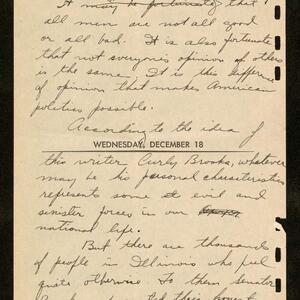 It may be fortunate that
all men are not all good
or all bad. It is also fortunate
that not everyone's opinion of others
is the same. It is this difference
of opinion that makes American
politics possible.
According to the idea of
WEDNESDAY, DECEMBER 18
this writer Curly Brooks, whatever
may be his personal characteristics
represents some evil and
sinister forces in our
national life.
But there are thousands
of people in Illinois who feel
quite otherwise. To them senator